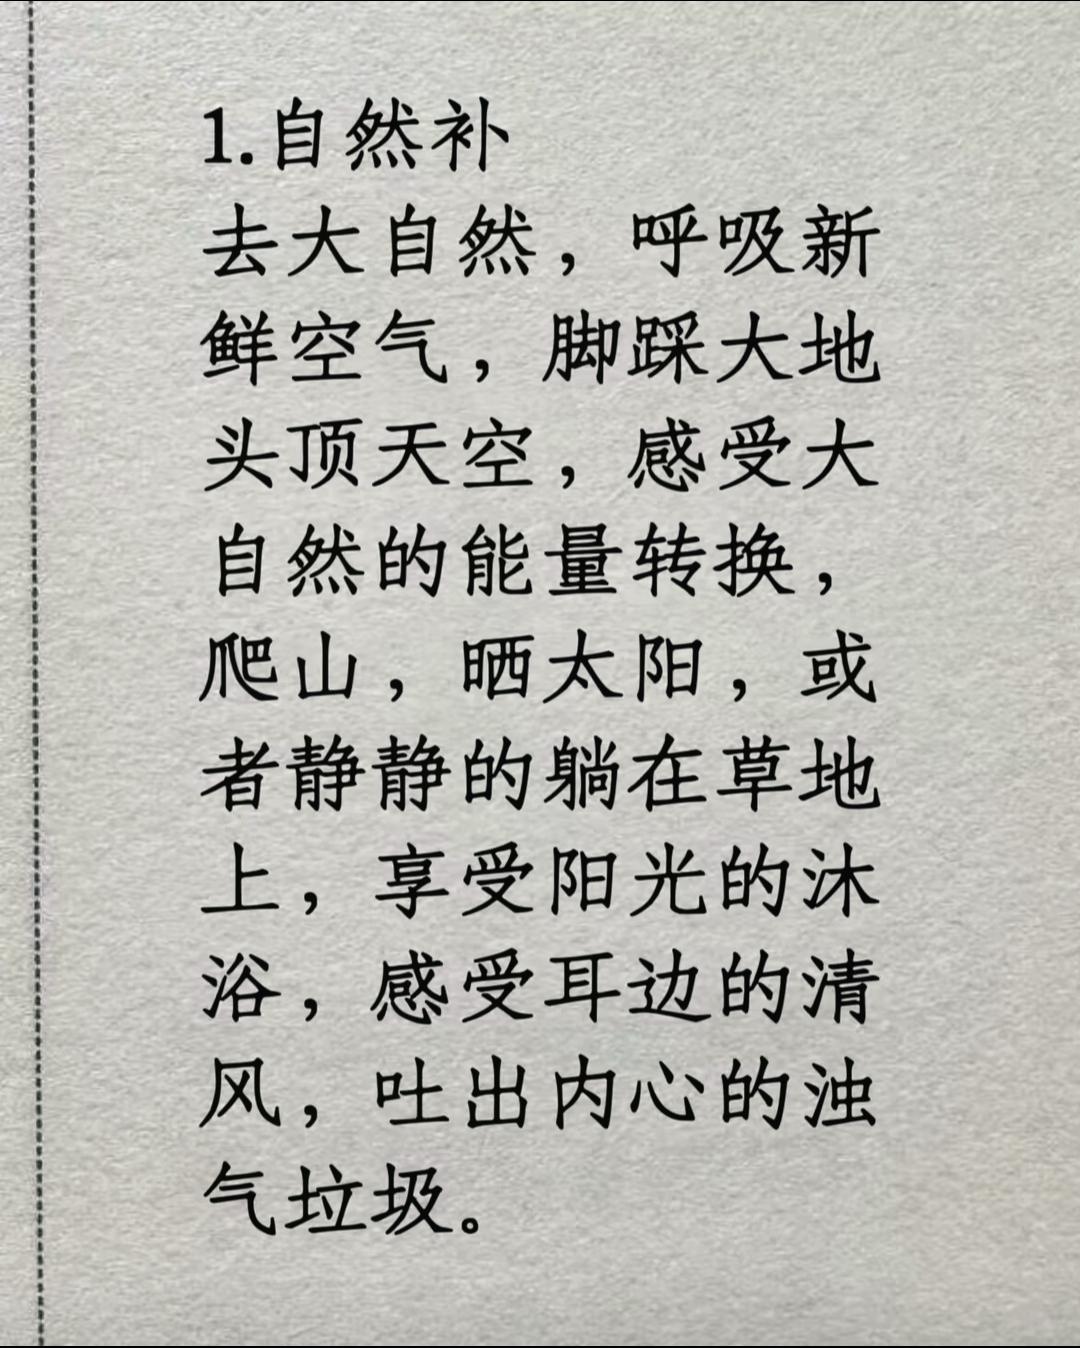 1.自然补
去大自然，呼吸新
鲜空气，脚踩大地
头顶天空，感受大
自然的能量转换，
爬山，晒太阳，或
者静静的躺在草地
上，享受阳光的沐
浴，感受耳边的清
风，吐出内心的浊
气垃圾。